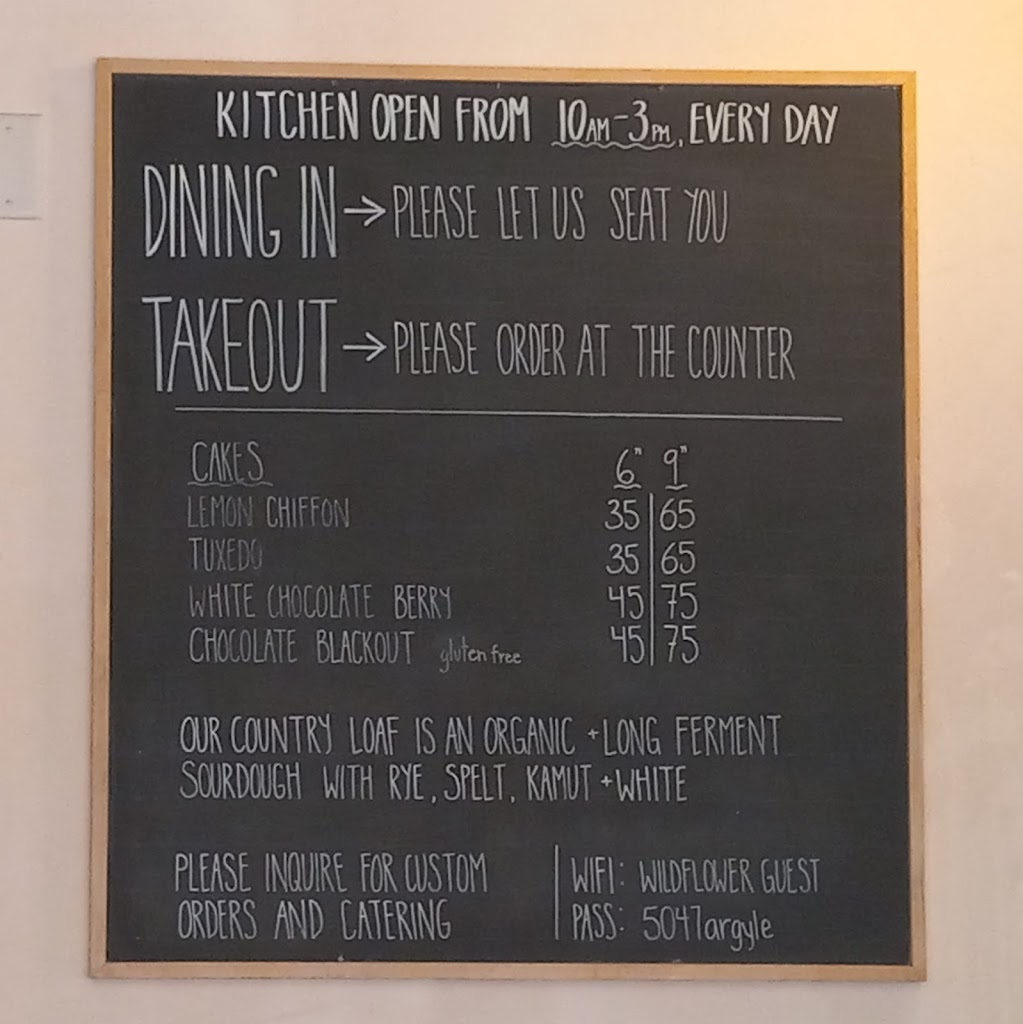 KITCHEN OPEN FROM 10AM-3PM, EVERY DAY
DINING IN → PLEASE LET US SEAT YOU
TAKEOUT → PLEASE ORDER AT THE COUNTER
CAKES 6" 9"
LEMON CHIFFON 35 | 65
TUXEDO 35 | 65
WHITE CHOCOLATE BERRY 45 | 75
CHOCOLATE BLACKOUT gluten free 45 | 75
OUR COUNTRY LOAF IS AN ORGANIC + LONG FERMENT
SOURDOUGH WITH RYE, SPELT, KAMUT + WHITE
PLEASE INQUIRE FOR CUSTOM
ORDERS AND CATERING
WIFI: WILDFLOWER GUEST
PASS: 5047argyle